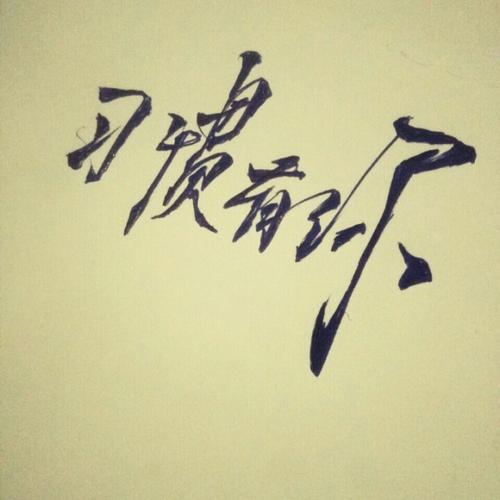 习惯有你